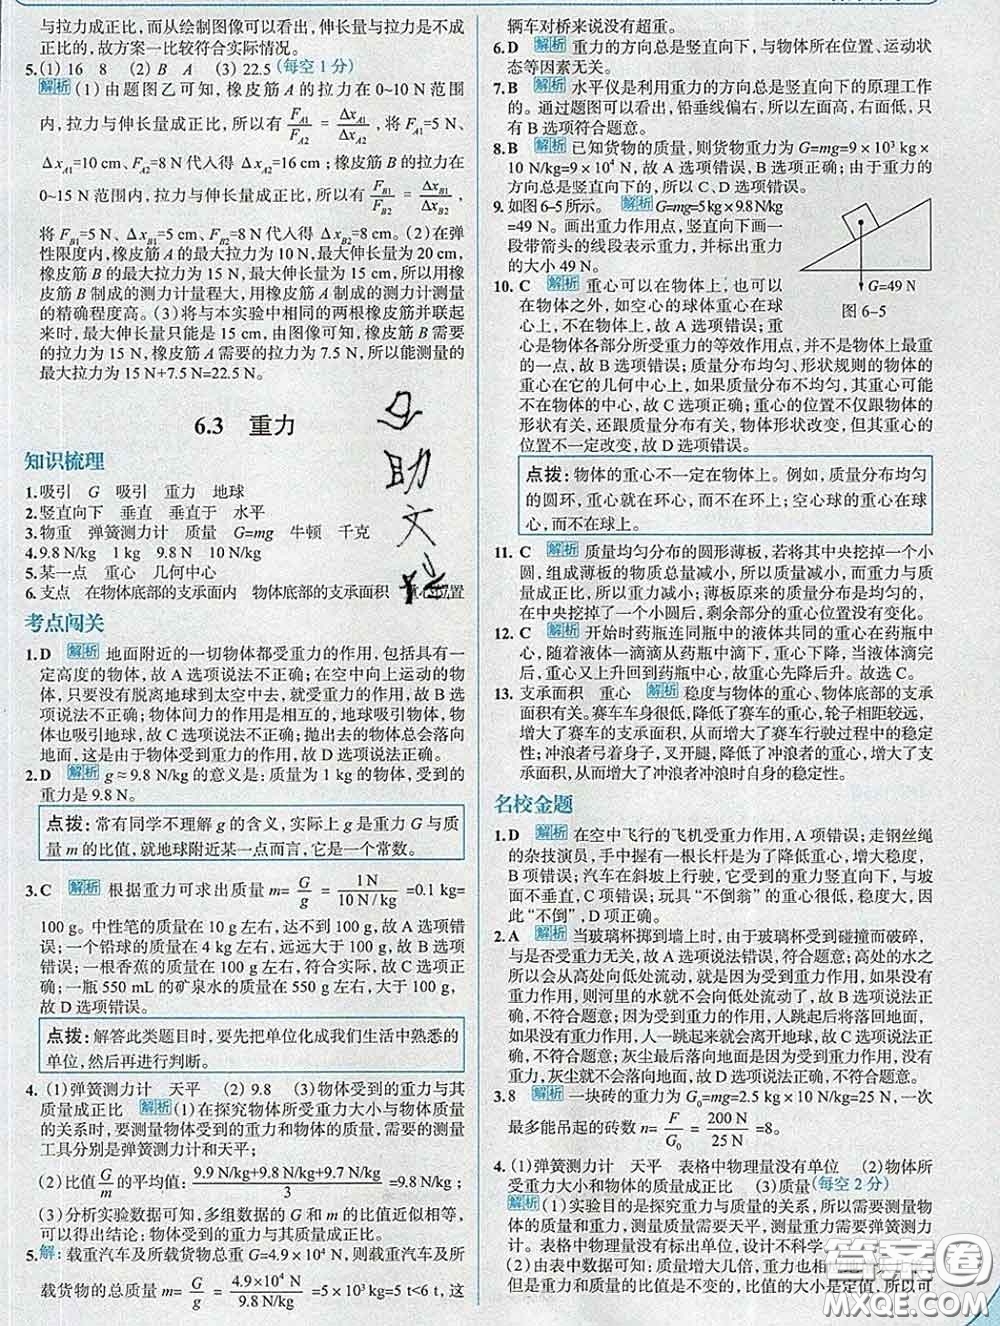 与拉力成正比，而从绘制图像可以看出，伸长量与拉力不是成
正比的，故方案一比较符合实际情况。
5.(1) 16　8　(2) B　A　(3) 22.5（每空 1 分）
解析 (1) 由题图乙可知，橡皮筋 A 的拉力在 0~10 N 范围
内，拉力与伸长量成正比，所以有 F_A1/F_A2 = Δx_A1/Δx_A2，将 F_A1=5 N、
Δx_A1=10 cm、F_A2=8 N 代入得 Δx_A2=16 cm；橡皮筋 B 的拉力在
0~15 N 范围内，拉力与伸长量成正比，所以有 F_B1/F_B2 = Δx_B1/Δx_B2，
将 F_B1=5 N、Δx_B1=5 cm、F_B2=8 N 代入得 Δx_B2=8 cm。(2) 在弹
性限度内，橡皮筋 A 的最大拉力为 10 N，最大伸长量为 20 cm，
橡皮筋 B 的最大拉力为 15 N，最大伸长量为 15 cm，所以用橡
皮筋 B 制成的测力计量程大，用橡皮筋 A 制成的测力计测量
的精确程度高。(3) 将与本实验中相同的两根橡皮筋并联起
来时，最大伸长量只能是 15 cm，由图像可知，橡皮筋 B 需要
的拉力为 15 N，橡皮筋 A 需要的拉力为 7.5 N，所以能测量的
最大拉力为 15 N+7.5 N=22.5 N。
6.3　重力
知识梳理
1.吸引　G　吸引　重力　地球
2.竖直向下　垂直　垂直于　水平
3.物重　弹簧测力计　质量　G=mg　牛顿　千克
4.9.8 N/kg　1 kg　9.8 N　10 N/kg
5.某一点　重心　几何中心
6.支点　在物体底部的支承面内　物体底部的支承面积　重心位置
考点闯关
1.D　解析 地面附近的一切物体都受重力的作用，包括具有一
定高度的物体，故 A 选项说法不正确；在空中向上运动的物
体，只要没有脱离地球到太空中去，就受重力的作用，故 B 选
项说法不正确；物体间力的作用是相互的，地球吸引物体，物
体也吸引地球，故 C 选项说法不正确；抛出去的物体总会落向
地面，这是由于物体受到重力的作用，故 D 选项说法正确。
2.D　解析 g≈9.8 N/kg 的意义是：质量为 1 kg 的物体，受到的
重力是 9.8 N。
点拨：常有同学不理解 g 的含义，实际上 g 是重力 G 与质
量 m 的比值，就地球附近某一点而言，它是一个常数。
3.C　解析 根据重力可求出质量 m= G/g = 1 N/(10 N/kg) =0.1 kg=
100 g。中性笔的质量在 10 g 左右，达不到 100 g，故 A 选项错
误；一个铅球的质量在 4 kg 左右，远远大于 100 g，故 B 选项
错误；一根香蕉的质量在 100 g 左右，符合实际，故 C 选项正
确；一瓶 550 mL 的矿泉水的质量在 550 g 左右，大于 100 g，
故 D 选项错误。
点拨：解答此类题目时，要先把单位化成我们生活中熟悉的
单位，然后再进行判断。
4.(1)弹簧测力计　天平　(2) 9.8　(3)物体受到的重力与其
质量成正比　解析 (1)在探究物体所受重力大小与物体质量
的关系时，要测量物体受到的重力和物体的质量，需要的测量
工具分别是弹簧测力计和天平；
(2)比值 G/m 的平均值：(9.9 N/kg+9.8 N/kg+9.7 N/kg)/3 =9.8 N/kg；
(3)分析实验数据可知，多组数据的 G 和 m 的比值近似相等，
可以得出结论：物体受到的重力与其质量成正比。
5.解：载重汽车及所载货物总重 G=4.9×10⁴ N，则载重汽车及所
载货物的总质量 m= G/g = 4.9×10⁴ N/(9.8 N/kg) =5×10³ kg=5 t<6 t，这
辆车对桥来说没有超重。
6.D　解析 重力的方向总是竖直向下，与物体所在位置、运动状
态等因素无关。
7.B　解析 水平仪是利用重力的方向总是竖直向下的原理工作
的。通过题图可以看出，铅垂线偏右，所以左面高，右面低，只
有 B 选项符合题意。
8.B　解析 已知货物的质量，则货物重力为 G=mg=9×10³ kg×
10 N/kg=9×10⁴ N，故 A 选项错误，B 选项正确；由于重力的
的方向总是竖直向下的，所以 C、D 选项错误。
9.如图 6-5 所示。　解析 G=mg=5 kg×9.8 N/kg
=49 N。画出重力作用点，竖直向下画一
段带箭头的线段表示重力，并标出重力
的大小 49 N。
G=49 N
图 6-5
10.C　解析 重心可以在物体上，也可以
在物体之外，如空心的球体重心在球
心上，不在物体上，故 A 选项错误；重
心是物体各部分所受重力的等效作用点，并不是物体上最重
的点，故 B 选项错误；质量分布均匀、形状规则的物体的
重心在它的几何中心上，如果质量分布不均匀，其重心可能
不在它的几何中心上，故 C 选项正确；重心的位置不仅跟物体的
形状有关，还跟质量分布有关，物体形状改变，但其重心的
位置不一定改变，故 D 选项错误。
点拨：物体的重心不一定在物体上。例如，质量分布均匀
的圆环，重心就在环心，而不在环上；空心球的重心在球
心，而不在球上。
11.C　解析 质量均匀分布的圆形薄板，若将其中央挖掉一个小
圆，组成薄板的物质总量减小，所以质量减小，而重力与质量有关，
所以重力减小；薄板原来的质量分布是均匀的，
在中央挖掉了一个小圆后，剩余部分的重心位置没有变化。
12.C　解析 开始时药瓶连同瓶中的液体共同的重心在药瓶中
心，随着液体一滴一滴从药瓶中滴下，重心下降，当液体滴完
后，重心又上升回到药瓶中心，即重心先下降后升高。故选 C。
13.支承面积　重心　解析 稳度与物体的重心、物体底部的支承
面积有关。赛车车身很低，降低了赛车的重心，轮子相距较远，
增大了赛车的支承面积，从而增大了赛车行驶过程中的稳定
性；冲浪者弓着身子，叉开腿，降低了冲浪者的重心，增大了支
承面积，从而增大了冲浪者冲浪时自身的稳定性。
名校金题
1.D　解析 在空中飞行的飞机受重力作用，A 项错误；走钢丝绳
的杂技演员，手中握有一根长杆是为了降低重心，增大稳度，
B 项错误；汽车在斜坡上行驶，它的重力竖直向下，与坡
面不垂直，C 项错误；玩具“不倒翁”的重心很低，稳度很大，因
此“不倒”，D 项正确。
2.A　解析 当玻璃杯掷到墙上时，由于玻璃杯受到碰撞而破碎，
与是否受重力无关，故 A 选项说法错误，符合题意；高处的水之
所以会从高处向低处流动，就是因为受到重力作用，如果没有
重力，则河里的水就不会向低处流动了，故 B 选项说法正
确，不符合题意；如果没有重力作用，人跳起后将落回地面，
如果没有重力作用，人一跳起来就会离开地球，故 C 选项说法
正确，不符合题意；灰尘最后落向地面是因为受到重力，如果没
有重力，灰尘就不会落向地面，故 D 选项说法正确，不符合题意。
3.8　解析 一块砖的重力为 G₀=mg=2.5 kg×10 N/kg=25 N，一次
最多能吊起的砖数 n= F/G₀ = 200 N/25 N =8。
4.(1)弹簧测力计　天平　表格中物理量没有单位　(2)物体所
受重力大小和物体的质量成正比　(3)质量（每空 2 分）
解析 (1)实验目的是探究重力与质量的关系，所以需要测量物体
的质量和重力，测量质量需要天平，测量重力需要弹簧测力
计。表格中物理量没有标出单位，设计不科学。
(2)由表中数据可知，质量增大几倍，重力也相
但是重力和质量的比值是不变的，比值是定值，所以可
答案圈
MXQE.COM